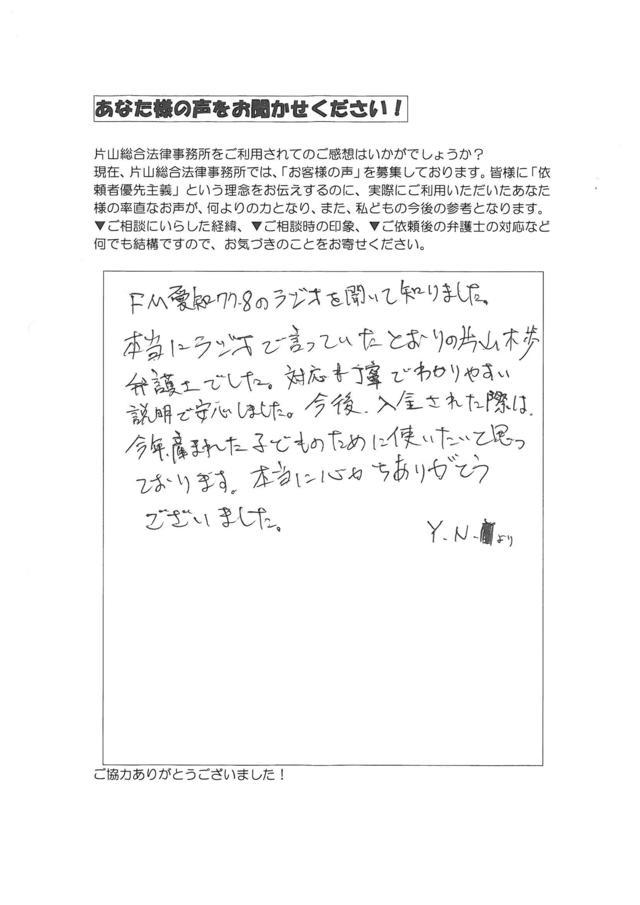 あなた様の声をお聞かせください！
片山総合法律事務所をご利用されてのご感想はいかがでしょうか？
現在、片山総合法律事務所では、「お客様の声」を募集しております。皆様に「依
頼者優先主義」という理念をお伝えするのに、実際にご利用いただいたあなた
様の率直なお声が、何よりの力となり、また、私どもの今後の参考となります。
▼ご相談にいらした経緯、▼ご相談時の印象、▼ご依頼後の弁護士の対応など
何でも結構ですので、お気づきのことをお寄せください。
FM愛知77.8のラジオを聞いて知りました。
本当にラジオで言っていたとおりの片山木歩
弁護士でした。対応も丁寧でわかりやすい
説明で安心しました。今後、入金された際は、
今年産まれた子どものために使いたいて思っ
ております。本当に心からありがとう
ございました。
Y.N.より
ご協力ありがとうございました！